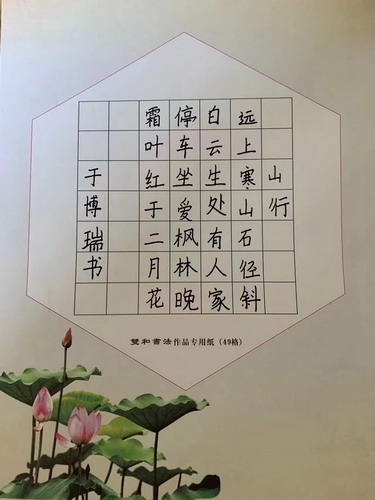 山行
远上寒山石径斜
白云生处有人家
停车坐爱枫林晚
霜叶红于二月花
于博瑞书
雙和書法作品专用纸(49格)